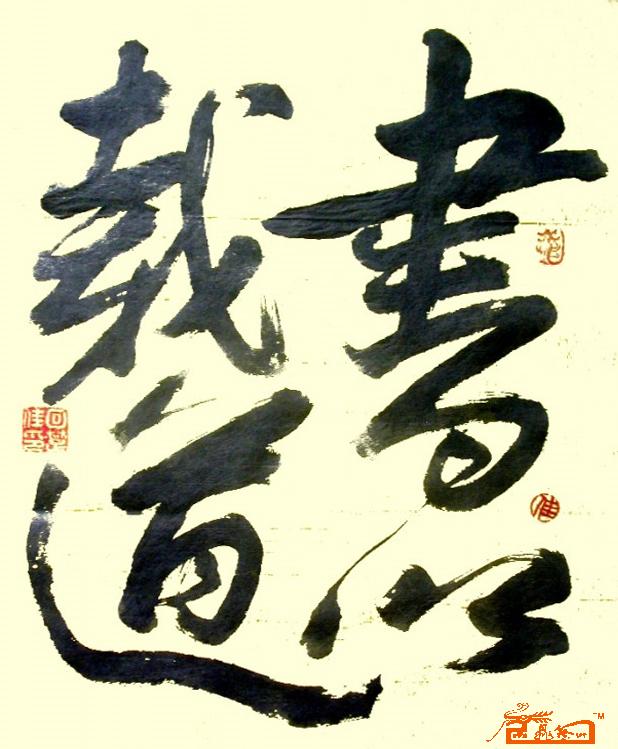 書以
載道